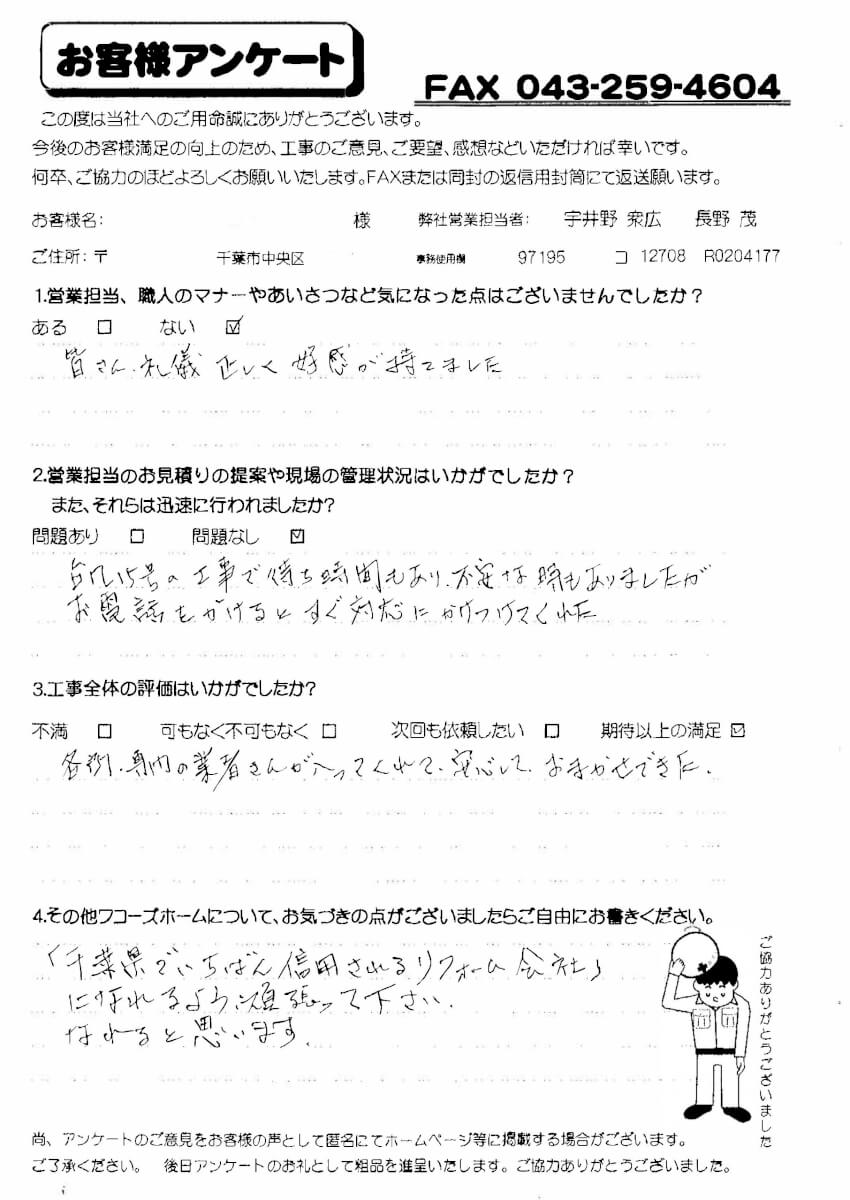 お客様アンケート
FAX 043-259-4604
この度は当社へのご用命誠にありがとうございます。
今後のお客様満足の向上のため、工事のご意見、ご要望、感想などいただければ幸いです。
何卒、ご協力のほどよろしくお願いいたします。FAXまたは同封の返信用封筒にて返送願います。
お客様名: 様 弊社営業担当者: 宇井野 衆広 長野 茂
ご住所:〒 千葉市中央区 事務使用欄 97195 コ 12708 R0204177
1.営業担当、職人のマナーやあいさつなど気になった点はございませんでしたか?
ある □ ない ☑
皆さん、礼儀正しく好感が持てました
2.営業担当のお見積りの提案や現場の管理状況はいかがでしたか?
また、それらは迅速に行われましたか?
問題あり □ 問題なし ☑
台風15号の工事で待ち時間もあり、不安な時もありましたが
お電話をかけるとすぐ対応にかけつけてくれた
3.工事全体の評価はいかがでしたか?
不満 □ 可もなく不可もなく □ 次回も依頼したい □ 期待以上の満足 ☑
専門の業者さんが入ってくれて、安心して、おまかせできた。
4.その他ワコーズホームについて、お気づきの点がございましたらご自由にお書きください。
「千葉県でいちばん信用されるリフォーム会社」
になれるよう頑張って下さい。
なれると思います。
ご協力ありがとうございました
尚、アンケートのご意見をお客様の声として匿名にてホームページ等に掲載する場合がございます。
ご了承ください。 後日アンケートのお礼として粗品を進呈いたします。ご協力ありがとうございました。